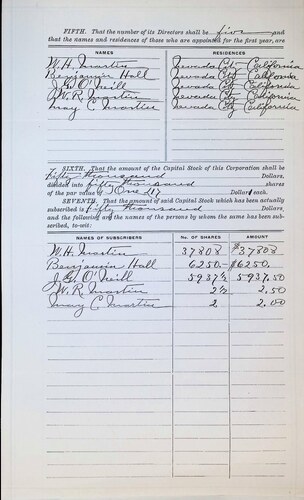 FIFTH. That the number of its Directors shall be five
and that the names and residences of those who are appointed for the first year, are
NAMES RESIDENCES
W. H. Martin Nevada City California
Benjamin Hall Nevada City California
J. G. O'Neill Nevada City California
W. R. Martin Nevada City California
May C Martin Nevada City California
SIXTH. That the amount of the Capital Stock of this Corporation shall be
fifty thousand Dollars,
divided into fifty thousand shares
of the par value of One $1 Dollars each.
SEVENTH. That the amount of said Capital Stock which has been actually
subscribed is fifty thousand Dollars,
and the following are the names of the persons by whom the same has been sub-
scribed, to-wit:
NAMES OF SUBSCRIBERS No. OF SHARES AMOUNT
W. H. Martin 37808 $37808
Benjamin Hall 6250 $6250.
J. G. O'Neill 5937½ 5937.50
W. R. Martin 2½ 2.50
May C Martin 2 2.00